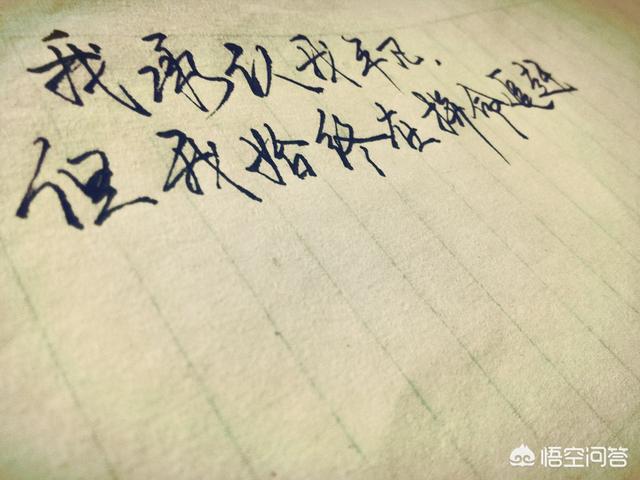 我承认我平凡.
但我始终在拼命追赶
悟空问答